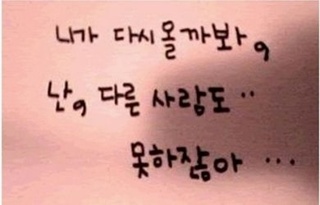 니가 다시올까봐,
난, 다른 사람도..
못하잖아 ...